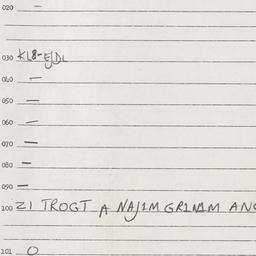 020 -
030 KL8-EJDL
040 -
050 -
060 -
070 -
080 -
090 -
100 ZI TROGT A
101 O